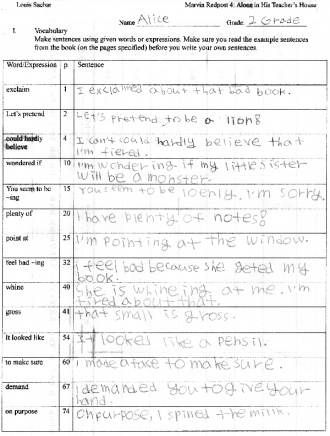 Louis Sachar Marvin Redpost 4: Alone in His Teacher's House
Name Alice Grade: 2 Grade
1. Vocabulary
Make sentences using given words or expressions. Make sure you read the example sentences
from the book (on the pages specified) before you write your own sentences.
Word/Expression p Sentence
exclaim 1 I exclaimed about that bad book.
Let's pretend 2 Let's pretend to be a lion!
could hardly believe 4 I can't could hardly believe that
I'm tiered.
wondered if 10 I'm wondering if my little sister
will be a monster.
You seem to be -ing 15 You seem to be loenly. I'm sorry.
plenty of 20 I have plenty of notes!
point at 25 I'm pointing at the window.
feel bad -ing 32 I feel bad because she geted my
book.
whine 40 She is whineing at me. I'm
tired about that.
gross 41 that small is gross.
It looked like 54 It looked like a pensil.
to make sure 60 I made a face to make sure.
demand 67 I demanded you to give your
hand.
on purpose 74 On purpose, I spined the milk.